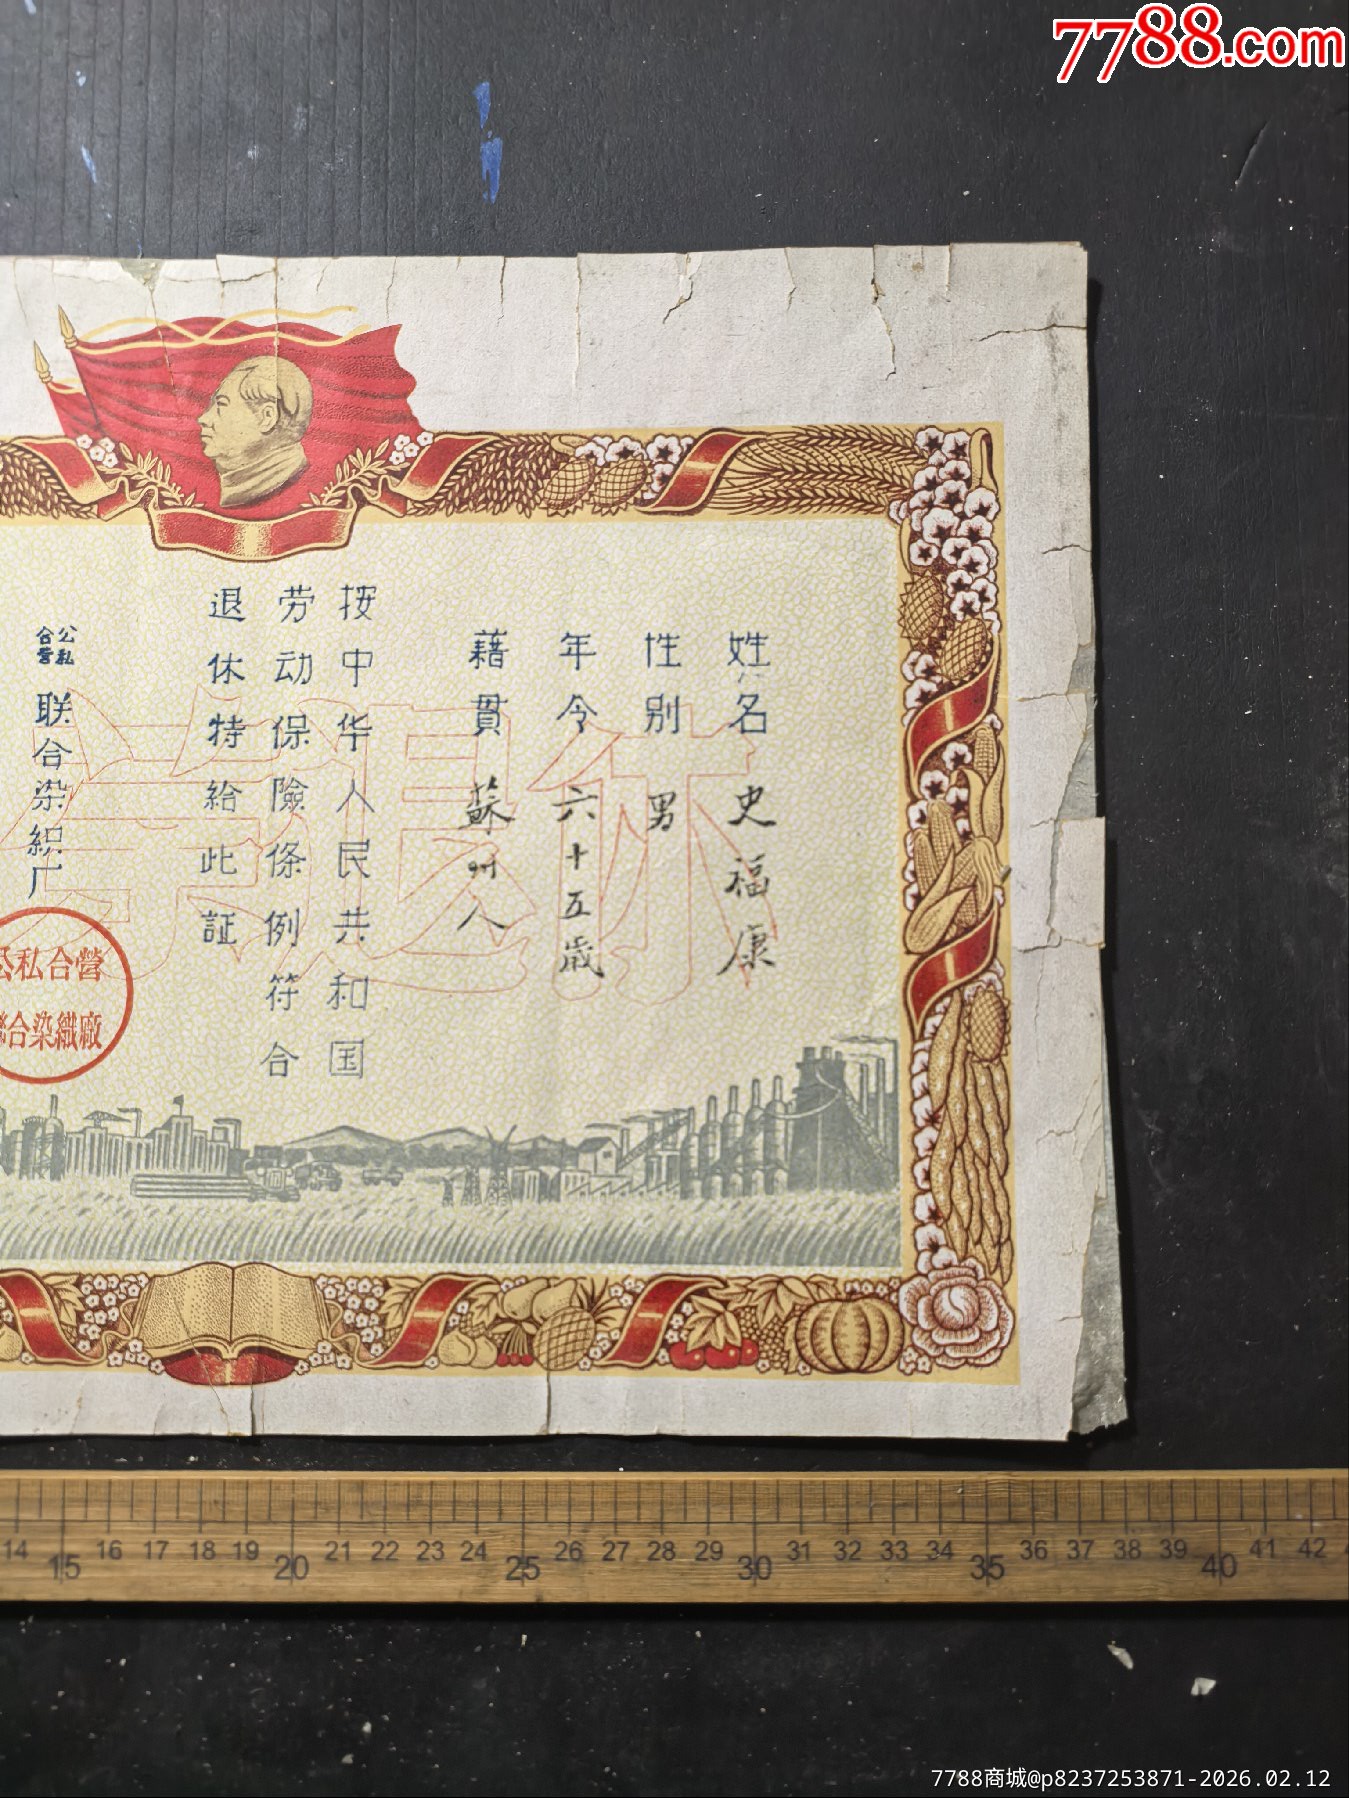 7788.com
姓名 史福康
性别 男
年令 六十五歲
藉貫 蘇州人
按中华人民共和国
劳动保險條例符合
退休特給此証
公私
合营
联合染织厂
公私合營
聯合染織廠
退休
14 15 16 17 18 19 20 21 22 23 24 25 26 27 28 29 30 31 32 33 34 35 36 37 38 39 40 41 42
7788商城@p8237253871-2026.02.12